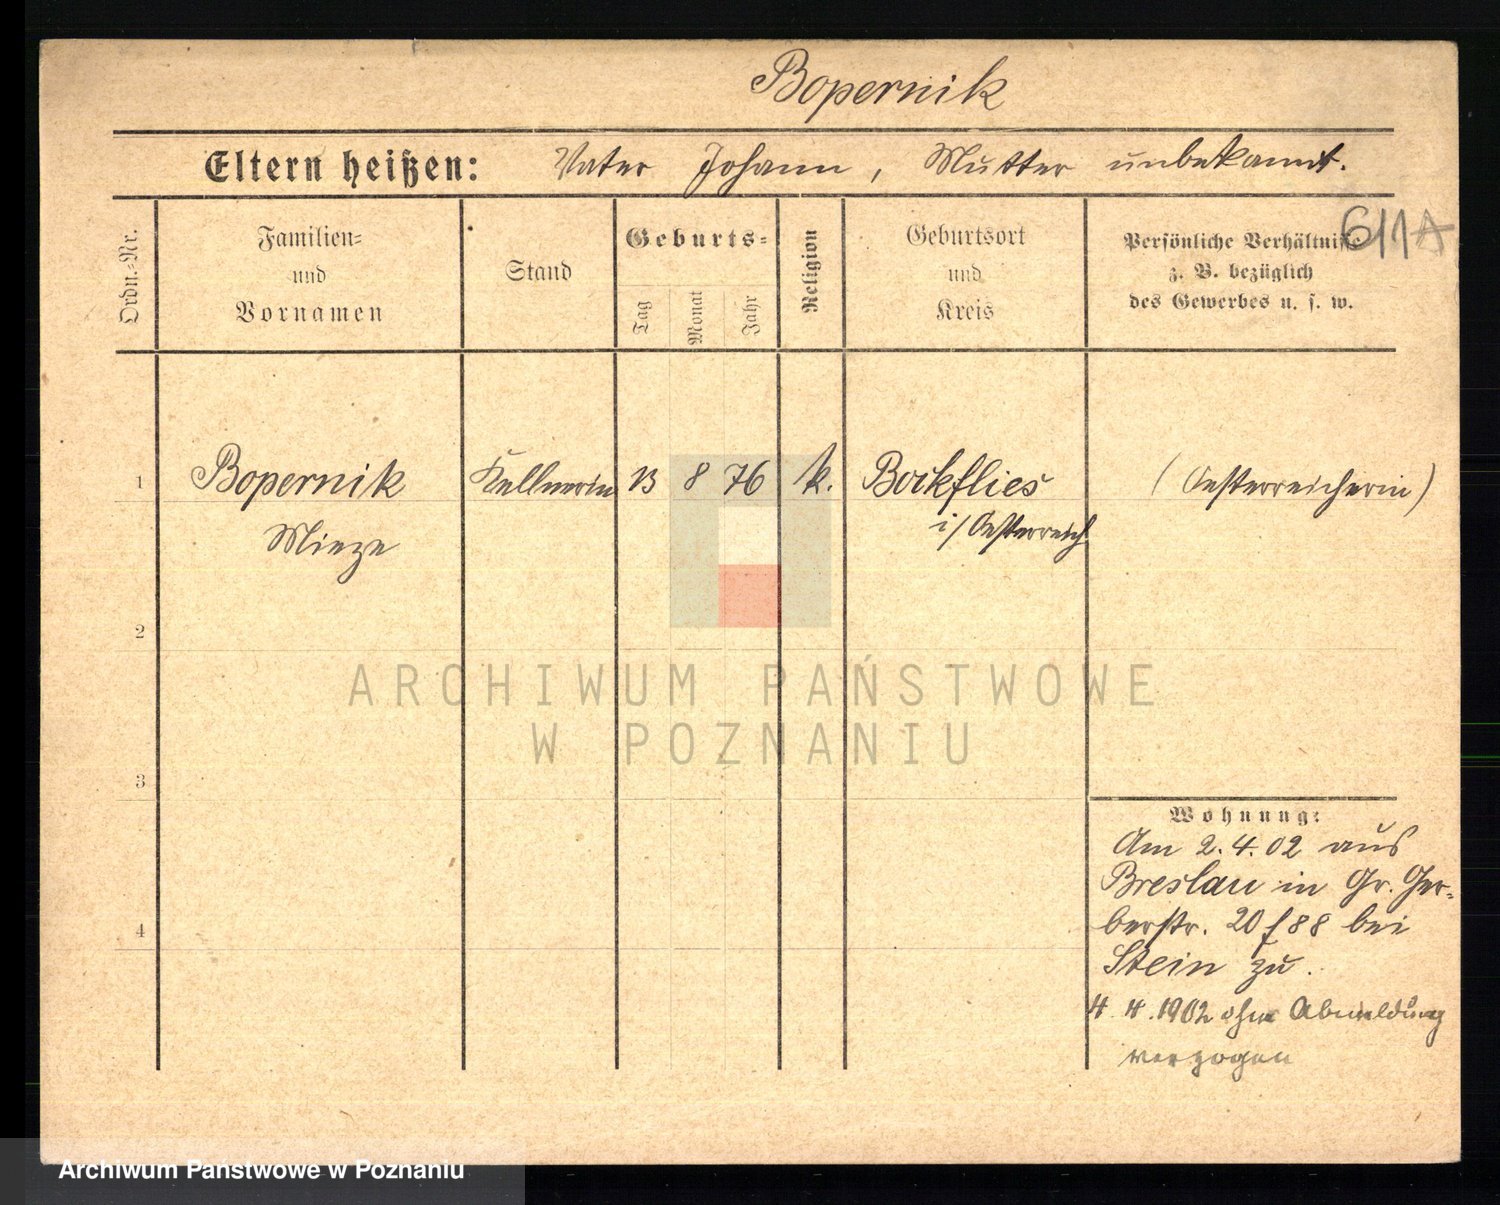 Bopernik
Eltern heißen: Vater Johann, Mutter unbekannt.
611A
Ordn.-Nr.
Familien-
und
Vornamen
Stand
Geburts-
Tag
Monat
Jahr
Religion
Geburtsort
und
Kreis
Persönliche Verhältnisse
z. B. bezüglich
des Gewerbes u. s. w.
1 Bopernik Kellnerin 13 8 76 k. Bockflies (Oesterreicherin)
Mieze i/Oesterreich
2
3
4
Wohnung:
Am 2.4.02 aus
Breslau in Gr. Ger-
berstr. 20 f 88 bei
Stein zu.
4.4.1902 ohne Abmeldung
verzogen
ARCHIWUM PAŃSTWOWE
W POZNANIU
Archiwum Państwowe w Poznaniu